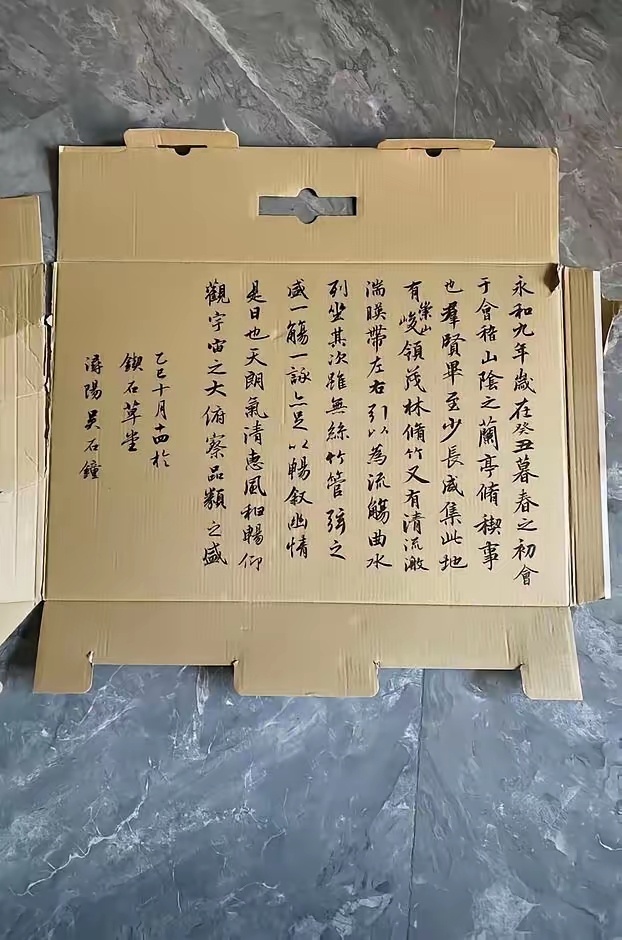 永和九年歲在癸丑暮春之初會
于會稽山陰之蘭亭脩稧事
也羣賢畢至少長咸集此地
有崇山峻領茂林脩竹又有清流激
湍暎帶左右引以為流觴曲水
列坐其次雖無絲竹管弦之
盛一觴一詠亦足以暢敘幽情
是日也天朗氣清惠風和暢仰
觀宇宙之大俯察品類之盛
乙巳十月十四於
鍥石草堂
潯陽吳石鐘